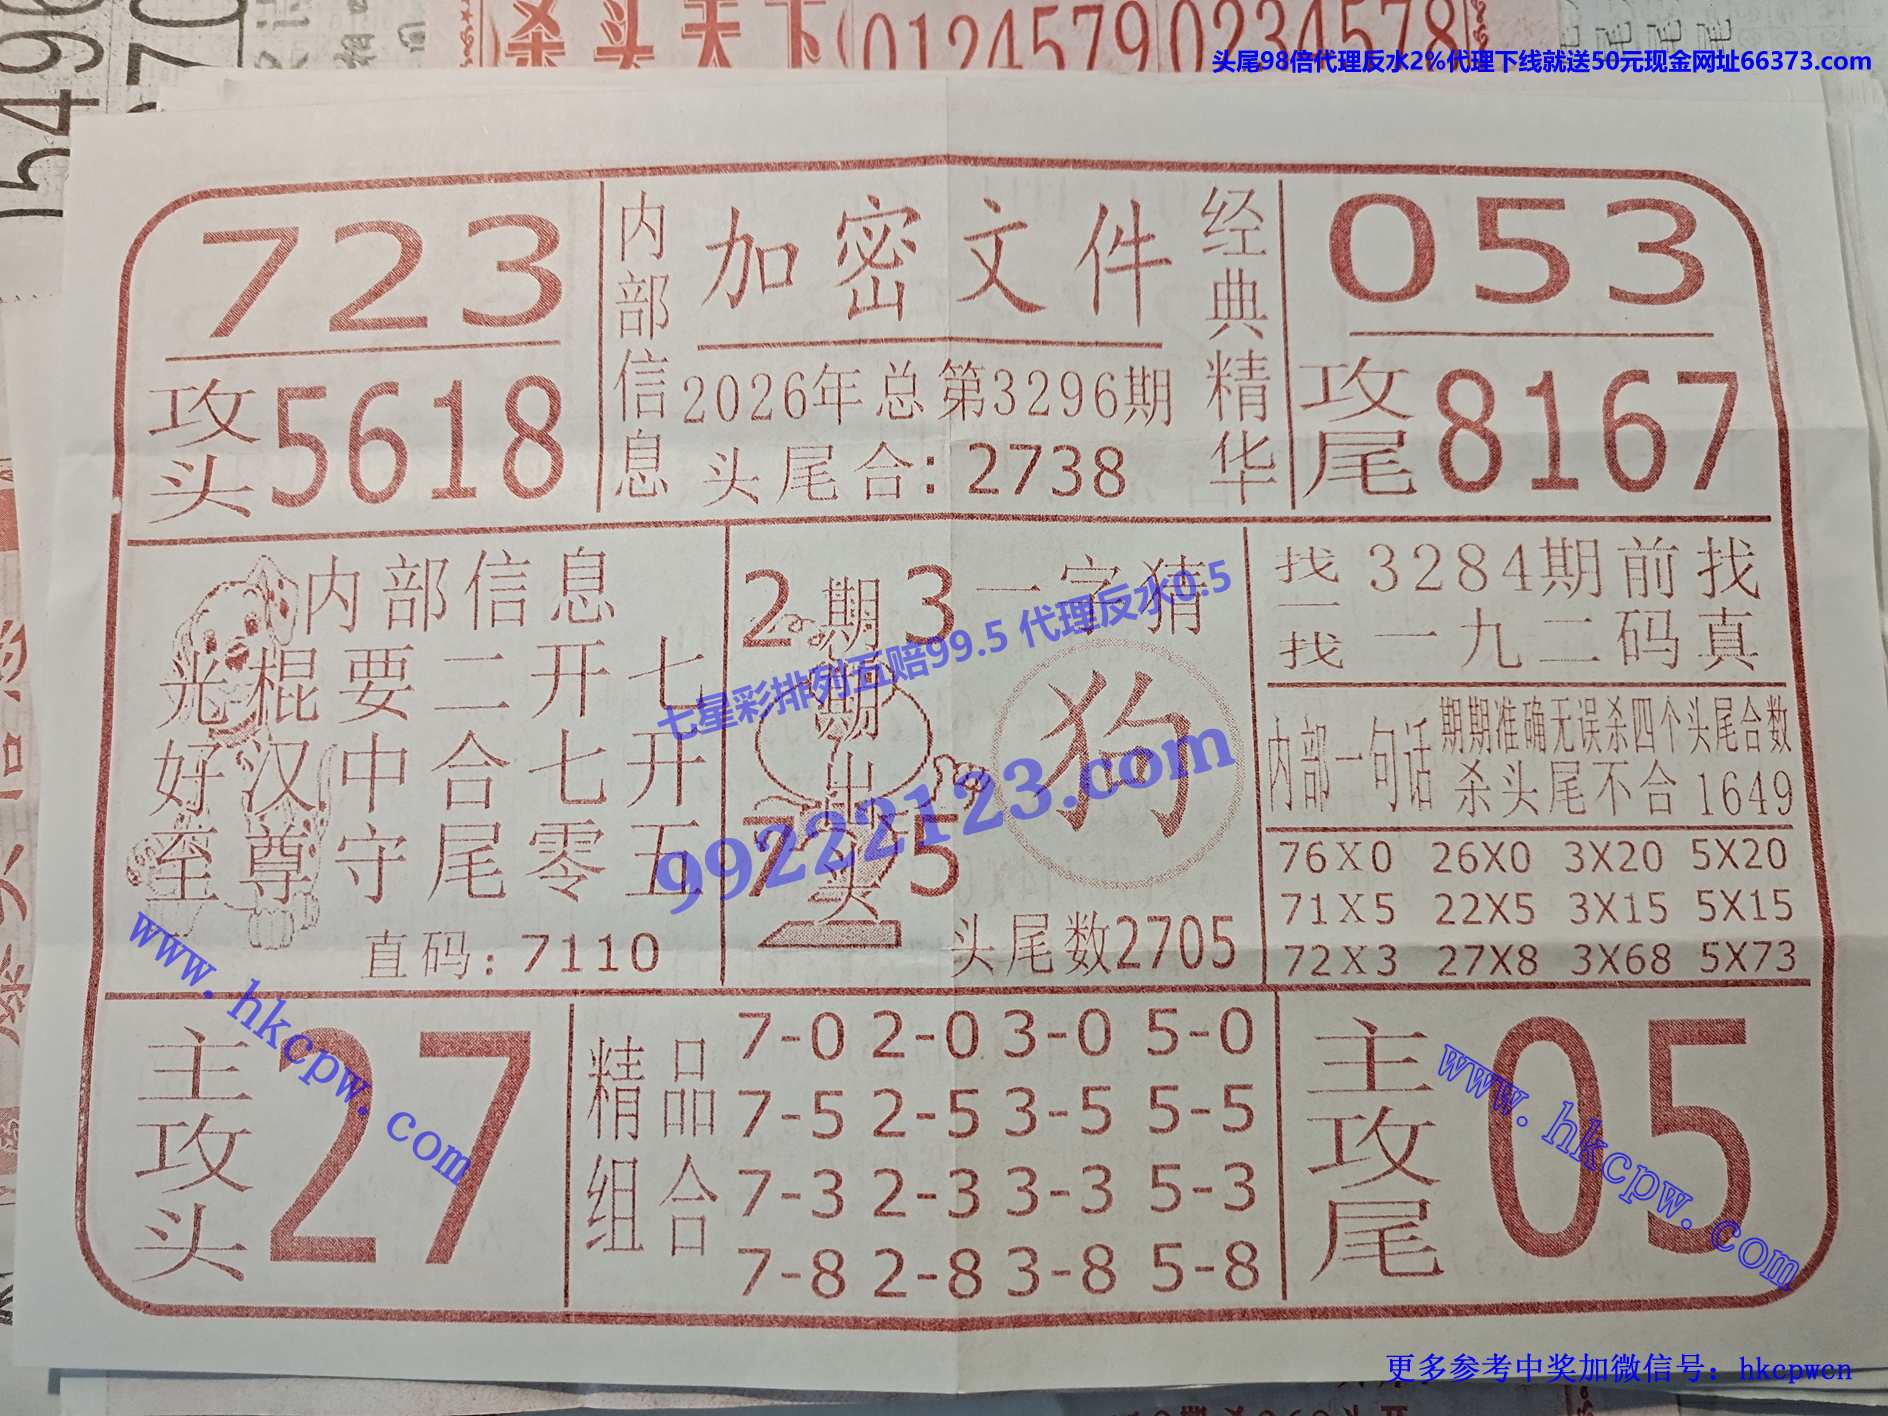 15496
杀头天下
0124579
0234578
头尾98倍代理反水2%代理下线就送50元现金网址66373.com
723
攻头
5618
内部信息
加密文件
2026年总第3296期
头尾合:2738
经典精华
053
攻尾
8167
内部信息
光棍要二开七
好汉中合七开
至尊守尾零五
直码:7110
2期3
期期出头
7225
一字猜
狗
头尾数2705
找一找
3284期前找
一九二码真
内部一句话
期期准确无误杀四个头尾合数
杀头尾不合1649
76X0 26X0 3X20 5X20
71X5 22X5 3X15 5X15
72X3 27X8 3X68 5X73
七星彩排列五赔99.5 代理反水0.5
99222123.com
主攻头
27
精品组合
7-0 2-0 3-0 5-0
7-5 2-5 3-5 5-5
7-3 2-3 3-3 5-3
7-8 2-8 3-8 5-8
主攻尾
05
www.hkcpw.com
www.hkcpw.com
更多参考中奖加微信号：hkcpwcn